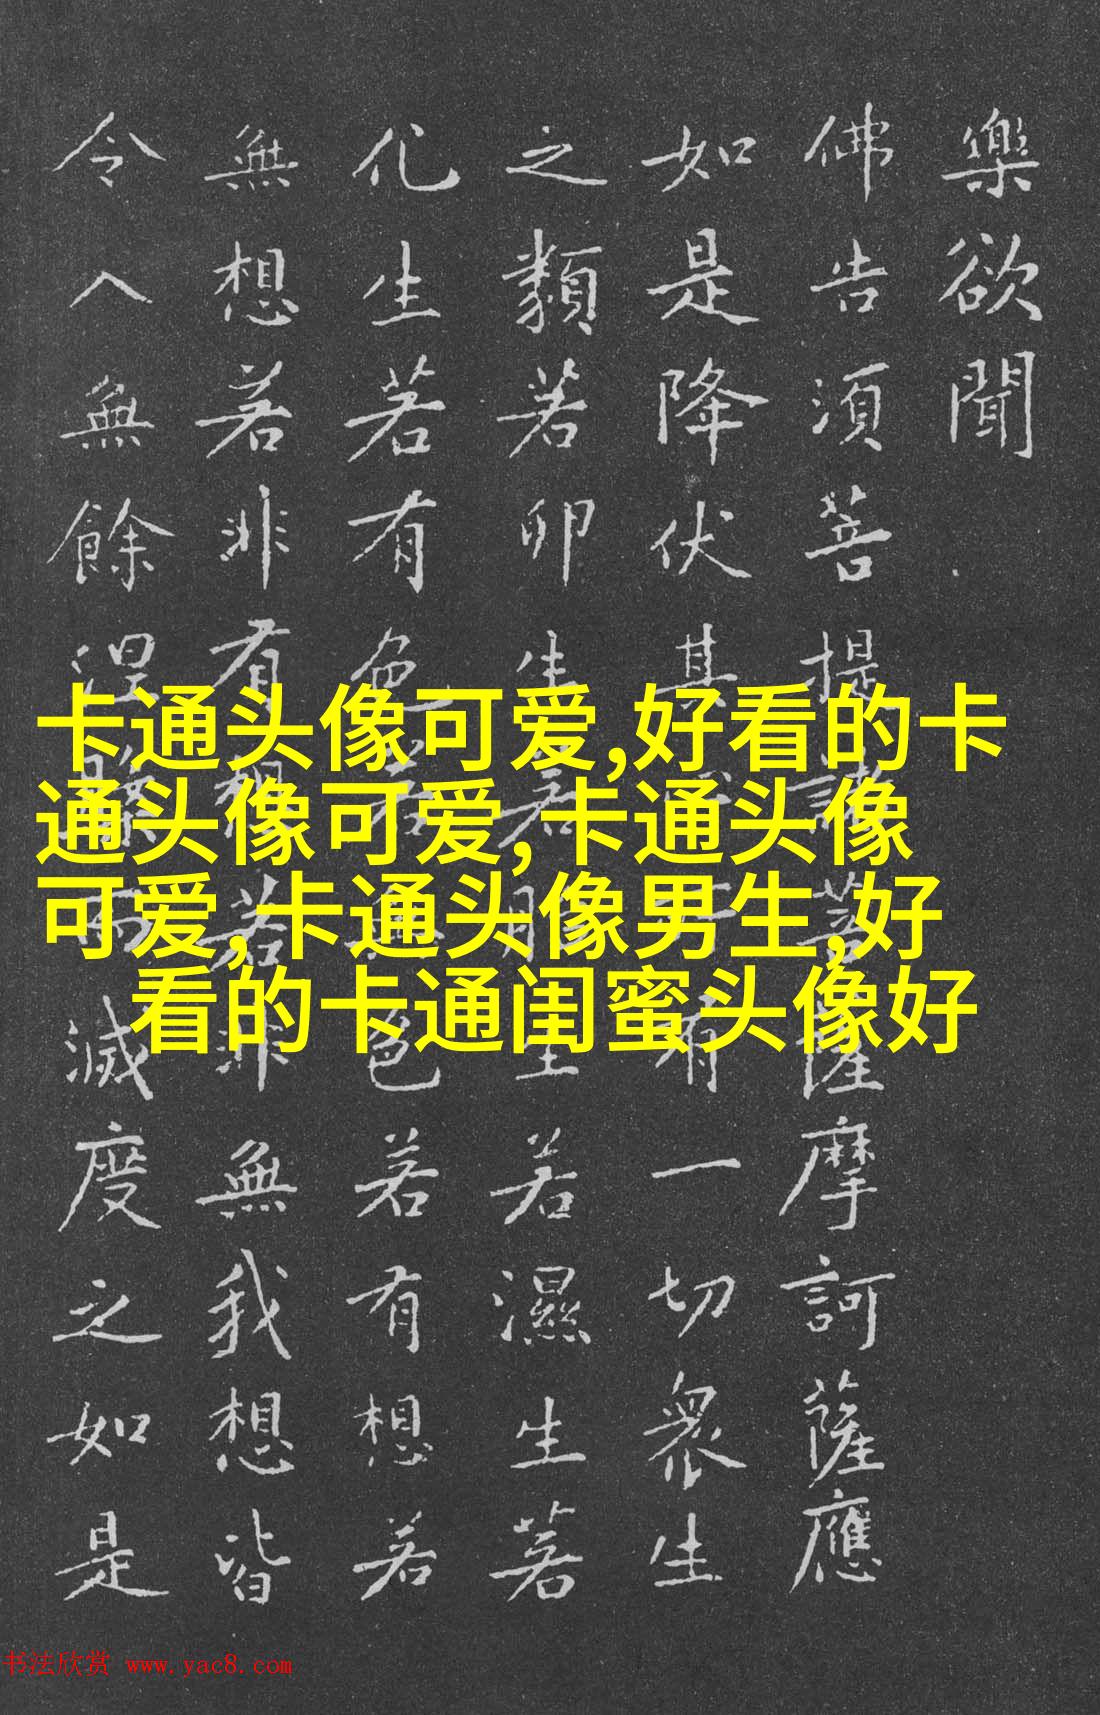 樂欲聞
佛告須菩提諸菩薩摩訶薩應
如是降伏其心所有一切衆生
之類若卵生若胎生若濕生若
化生若有色若無色若有想若
無想若非有想若非無我想皆
令入無餘涅槃而滅度之如是
卡通头像可爱,好看的卡
通头像可爱,卡通头像
可爱,卡通头像男生,好
看的卡通闺蜜头像好
书法欣赏 www.yac8.com